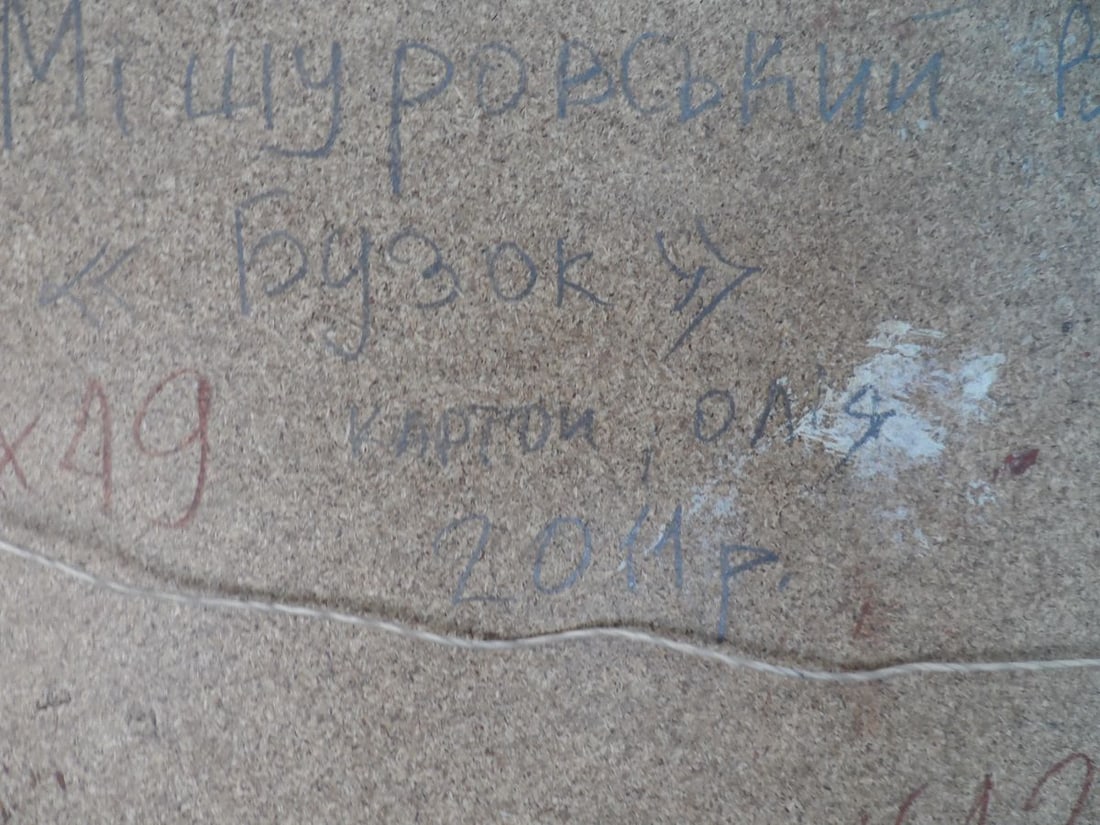 Мішуровський В
« Бузок »
x19
картон, олія
2011 р.